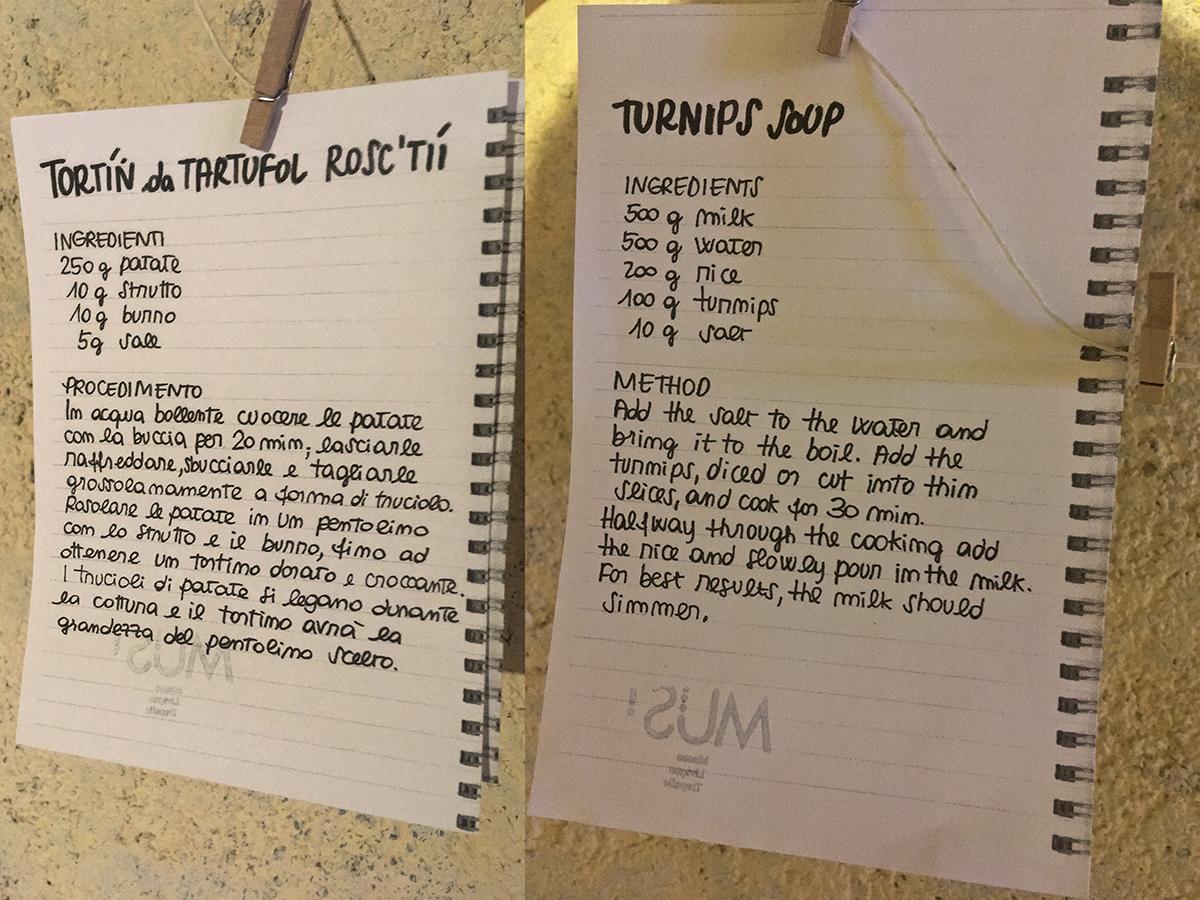 TORTÍŃ da TARTUFOL ROSC'TIÍ
INGREDIENTI
250 g patate
10 g strutto
10 g burro
5g sale
PROCEDIMENTO
In acqua bollente cuocere le patate
con la buccia per 20 min; lasciarle
raffreddare, sbucciarle e tagliarle
grossolanamente a forma di truciolo.
Rosolare le patate in un pentolino
con lo strutto e il burro, fino ad
ottenere un tortino dorato e croccante.
I trucioli di patate si legano durante
la cottura e il tortino avrà la
grandezza del pentolino scelto.
MUS!
Museo
Livigno
Trepalle
TURNIPS SOUP
INGREDIENTS
500 g milk
500 g water
200 g rice
100 g turnips
10 g salt
METHOD
Add the salt to the water and
bring it to the boil. Add the
turnips, diced or cut into thin
slices, and cook for 30 min.
Halfway through the cooking add
the rice and slowly pour in the milk.
For best results, the milk should
simmer.
MUS!
Museo
Livigno
Trepalle